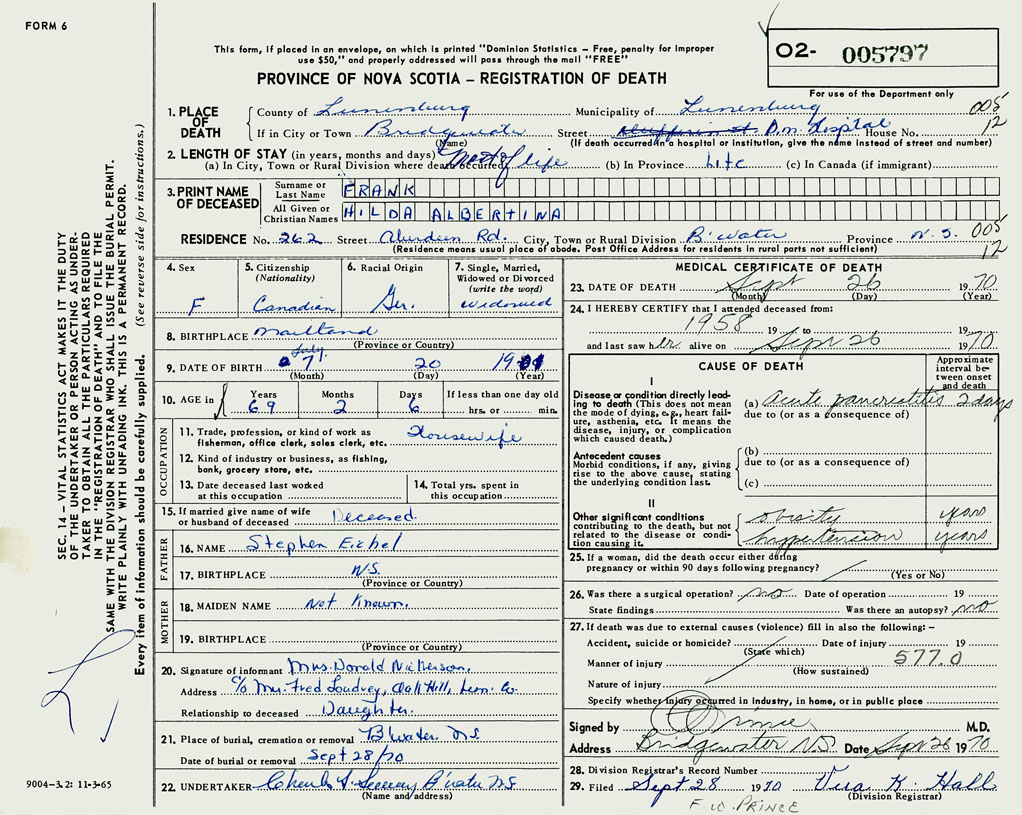 FORM 6
This form, if placed in an envelope, on which is printed "Dominion Statistics – Free, penalty for improper
use $50," and properly addressed will pass through the mail "FREE"
PROVINCE OF NOVA SCOTIA – REGISTRATION OF DEATH
02- 005797
For use of the Department only
005
12
1. PLACE OF DEATH
County of Lunenburg Municipality of Lunenburg
If in City or Town Bridgewater Street D.M. Hospital House No.
(Name) (If death occurred in a hospital or institution, give the name instead of street and number)
2. LENGTH OF STAY (in years, months and days)
(a) In City, Town or Rural Division where death occurred Most of life (b) In Province Life (c) In Canada (if immigrant)
3. PRINT NAME OF DECEASED
Surname or Last Name FRANK
All Given or Christian Names HILDA ALBERTINA
RESIDENCE No. 262 Street Aberdeen Rd. City, Town or Rural Division B'water Province N.S.
(Residence means usual place of abode. Post Office Address for residents in rural parts not sufficient)
005
12
4. Sex F
5. Citizenship (Nationality) Canadian
6. Racial Origin Ger.
7. Single, Married, Widowed or Divorced (write the word) widowed
8. BIRTHPLACE Maitland
(Province or Country)
9. DATE OF BIRTH July 7 20 19
(Month) (Day) (Year)
10. AGE in Years 69 Months 2 Days 6 If less than one day old hrs. or min.
OCCUPATION
11. Trade, profession, or kind of work as fisherman, office clerk, sales clerk, etc. Housewife
12. Kind of industry or business, as fishing, bank, grocery store, etc.
13. Date deceased last worked at this occupation
14. Total yrs. spent in this occupation
15. If married give name of wife or husband of deceased Deceased.
FATHER
16. NAME Stephen Eichel
17. BIRTHPLACE N.S.
(Province or Country)
MOTHER
18. MAIDEN NAME Not Known.
19. BIRTHPLACE
(Province or Country)
20. Signature of informant Mrs. Donald Nickerson.
Address c/o Mrs. Fred Oak Hill, Lun. Co.
Relationship to deceased Daughter.
21. Place of burial, cremation or removal B'water N.S.
Date of burial or removal Sept 28/70
22. UNDERTAKER B'water N.S.
(Name and address)
MEDICAL CERTIFICATE OF DEATH
23. DATE OF DEATH Sept 26 1970
(Month) (Day) (Year)
24. I HEREBY CERTIFY that I attended deceased from:
1958 19 to 19
and last saw her alive on Sept 26 1970
CAUSE OF DEATH
Approximate interval between onset and death
I
Disease or condition directly leading to death (This does not mean the mode of dying, e.g., heart failure, asthenia, etc. It means the disease, injury, or complication which caused death.)
(a) Acute pancreatitis 2 days
due to (or as a consequence of)
Antecedent causes
Morbid conditions, if any, giving rise to the above cause, stating the underlying condition last.
(b)
due to (or as a consequence of)
(c)
II
Other significant conditions contributing to the death, but not related to the disease or condition causing it.
obesity years
hypertension years
25. If a woman, did the death occur either during pregnancy or within 90 days following pregnancy?
(Yes or No)
26. Was there a surgical operation? no Date of operation 19
State findings Was there an autopsy? no
27. If death was due to external causes (violence) fill in also the following: –
Accident, suicide or homicide? Date of injury 19
(State which)
Manner of injury 577.0
(How sustained)
Nature of injury
Specify whether injury occurred in industry, in home, or in public place
Signed by Prince M.D.
Address Bridgewater N.S. Date Sept 28 1970
28. Division Registrar's Record Number
29. Filed Sept 28 1970 Vera K. Hall
(Division Registrar)
F. W. PRINCE
SEC. 14 – VITAL STATISTICS ACT MAKES IT THE DUTY
OF THE UNDERTAKER OR PERSON ACTING AS UNDER-
TAKER TO OBTAIN ALL THE PARTICULARS REQUIRED
IN THE "REGISTRATION OF DEATH" AND TO FILE THE
SAME WITH THE DIVISION REGISTRAR WHO SHALL ISSUE THE BURIAL PERMIT.
WRITE PLAINLY WITH UNFADING INK. THIS IS A PERMANENT RECORD.
Every item of information should be carefully supplied. (See reverse side for instructions.)
9004-3.2: 11-3-65